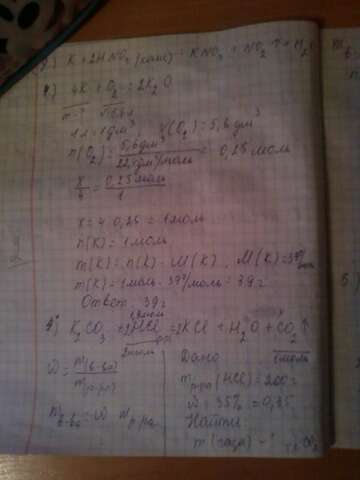 K + 2HNO3 (конс) = KNO3 + NO2↑ + H2O
4K + O2 = 2K2O
m-? V=5,6 л
1 л = 1 дм³ V(O2) = 5,6 дм³
n(O2) = 5,6 дм³ / 22,4 дм³/моль = 0,25 моль
x/4 = 0,25 моль/1
x = 4 · 0,25 = 1 моль
n(K) = 1 моль
m(K) = n(K) · M(K). M(K) = 39 г/моль
m(K) = 1 моль · 39 г/моль = 39 г
Ответ: 39 г
K2CO3 + 2HCl = 2KCl + H2O + CO2↑
2 моль 1 моль
Дано
ω = m(в-ва) / m(р-ра)
mр-ра (HCl) = 200 г
ω = 35% = 0,35
mв-ва = ω · mр-ра
Найти
m (газа) - ?